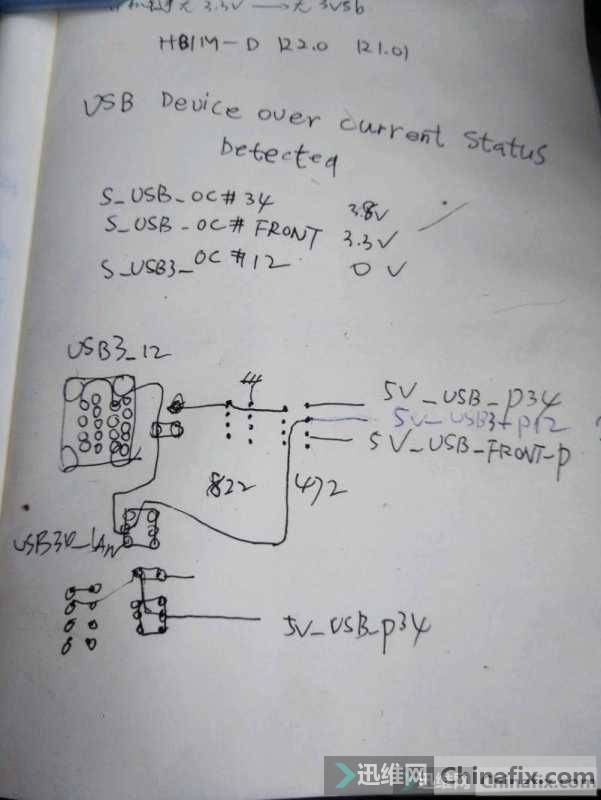 3.3V → 无 3VSb
H81M-D 122.0 121.01
USB Device over current Status
Detected
S_USB_OC#34 3.8V
S_USB_OC# FRONT 3.3V
S_USB3_OC#12 0 V
USB3_12
5V_USB_P34
5V_USB3+P12 ?
5V_USB_FRONT_P
822 472
5V_USB_P34
迅维网 Chinafix.com